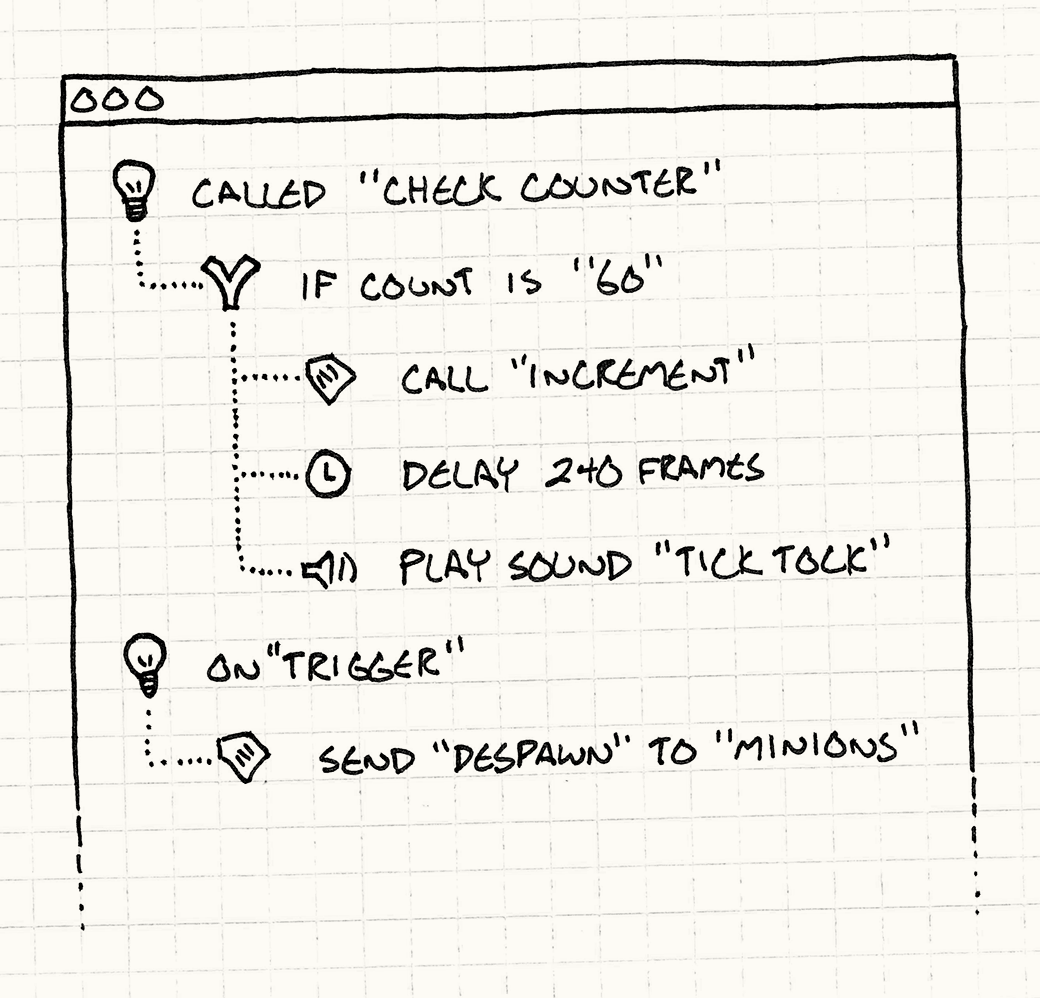 CALLED "CHECK COUNTER"
IF COUNT IS "60"
CALL "INCREMENT"
DELAY 240 FRAMES
PLAY SOUND "TICK TOCK"
ON "TRIGGER"
SEND "DESPAWN" TO "MINIONS"